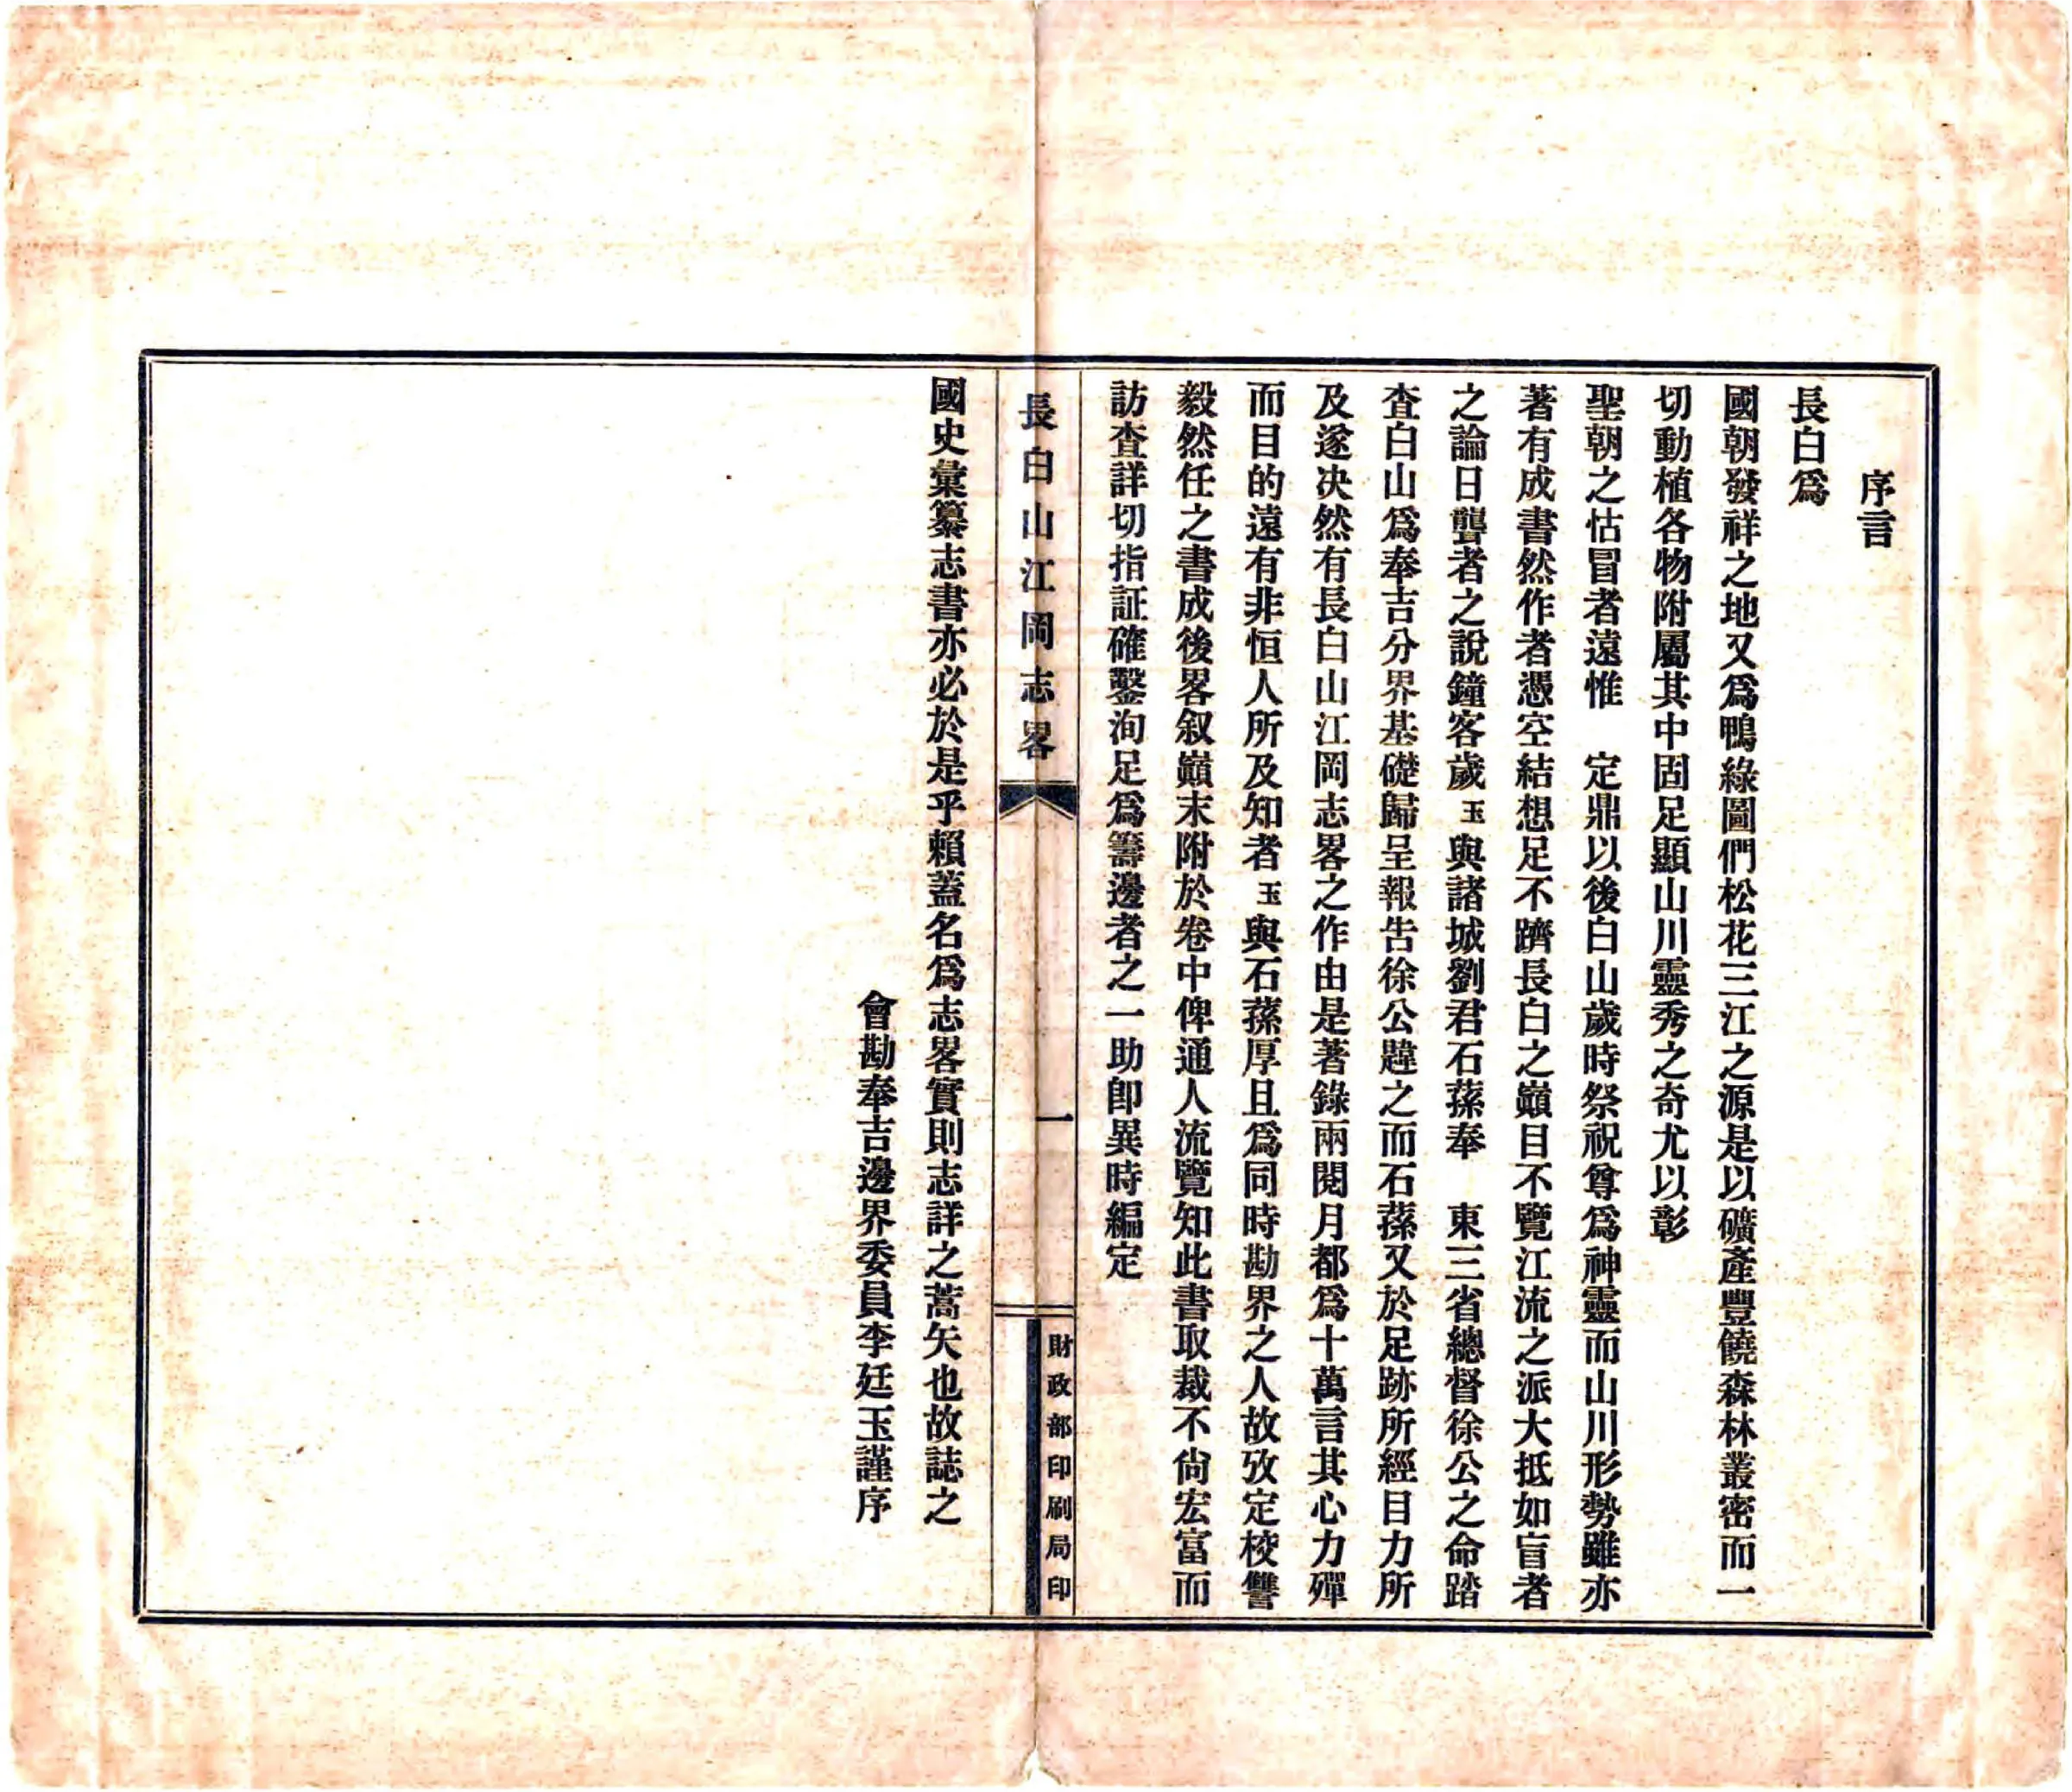 序言
長白爲
國朝發祥之地又爲鴨綠圖們松花三江之源是以礦產豐饒森林叢密而一
切動植各物附屬其中固足顯山川靈秀之奇尤以彰
聖朝之怙冒者遠惟　定鼎以後白山歲時祭祝尊爲神靈而山川形勢雖亦
著有成書然作者憑空結想足不躋長白之巓目不覽江流之派大抵如盲者
之論日聾者之說鐘客歲玉與諸城劉君石蓀奉　東三省總督徐公之命踏
查白山爲奉吉分界基礎歸呈報告徐公韙之而石蓀又於足跡所經目力所
及遂决然有長白山江岡志畧之作由是著錄兩閱月都爲十萬言其心力殫
而目的遠有非恒人所及知者玉與石蓀厚且爲同時勘界之人故攷定校讐
毅然任之書成後畧叙巓末附於卷中俾通人流覽知此書取裁不尙宏富而
訪查詳切指証確鑿洵足爲籌邊者之一助卽異時編定
長白山江岡志畧
一
財政部印刷局印
國史彙纂志書亦必於是乎賴蓋名爲志畧實則志詳之蒿矢也故誌之
會勘奉吉邊界委員李廷玉謹序